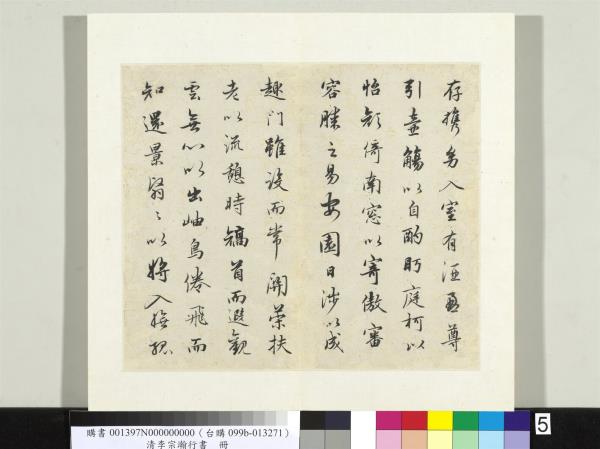 存攜幼入室有酒盈尊
引壺觴以自酌眄庭柯以
怡顏倚南窓以寄傲審
容膝之易安園日涉以成
趣門雖設而常關策扶
老以流憩時矯首而遐觀
雲無心以出岫鳥倦飛而
知還景翳〻以將入撫孤
購書 001397N000000000（台購 099b-013271）
清李宗瀚行書 冊
5